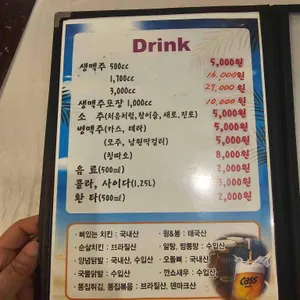 Drink
생맥주 500cc 5,000원
1,700cc 16,000원
3,000cc 27,000원
생맥주포장 1,000cc 10,000원
소 주(처음처럼,참이슬,새로,진로) 5,000원
병맥주(카스, 테라) 5,000원
(모주, 남원막걸리) 5,000원
(칭따오) 8,000원
음 료(500㎖) 2,000원
콜라, 사이다(1.25L) 3,000원
환 타(500㎖) 2,000원
·뼈있는 치킨 : 국내산 ·윙&봉 : 태국산
·순살치킨 : 브라질산 ·알탕, 짬뽕탕 : 수입산
·양념닭발 : 국내산, 수입산 ·오돌뼈 : 국내산
·국물닭발 : 수입산 ·깐쇼새우 : 수입산
·똥집튀김, 똥집볶음 : 브라질산, 덴마크산
Cass